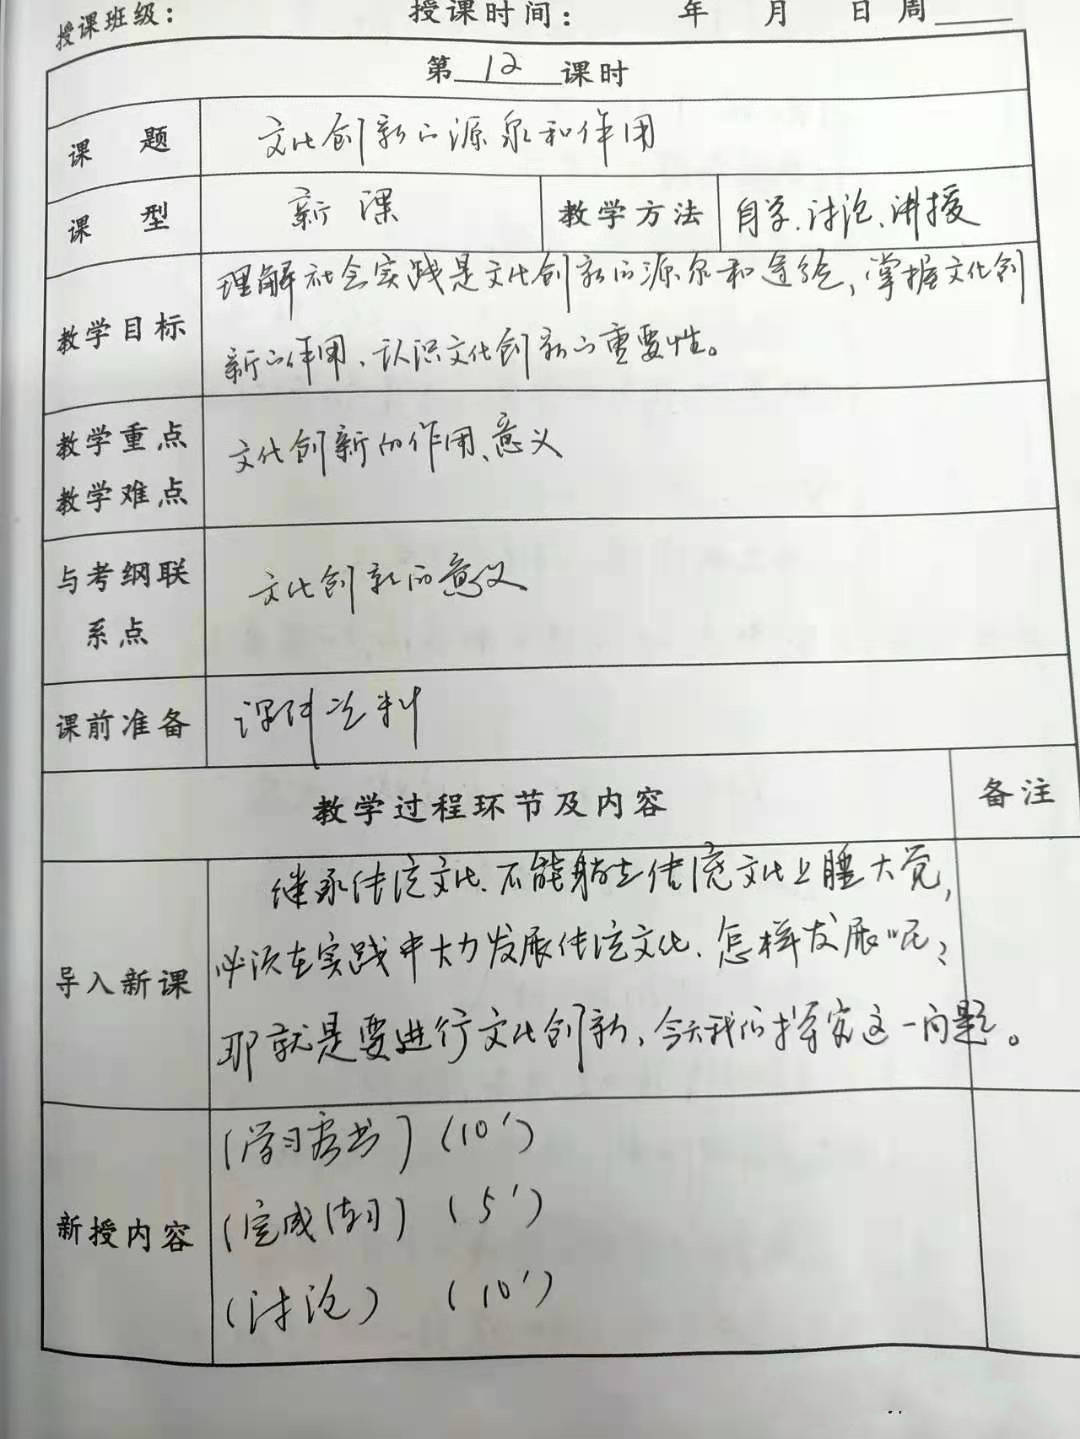 授课班级： 授课时间： 年 月 日 周
第 12 课时
课 题 文化创新的源泉和作用
课 型 新课 教学方法 自学、讨论、讲授
教学目标 理解社会实践是文化创新的源泉和途径，掌握文化创
新的作用、认识文化创新的重要性。
教学重点
教学难点 文化创新的作用、意义
与考纲联
系点 文化创新的意义
课前准备 课件资料
教学过程环节及内容 备注
导入新课 继承传统文化、不能躺在传统文化上睡大觉，
必须在实践中大力发展传统文化、怎样发展呢？
那就是要进行文化创新，今天我们探究这一问题。
新授内容 (学习看书) (10′)
(完成练习) (5′)
(讨论) (10′)